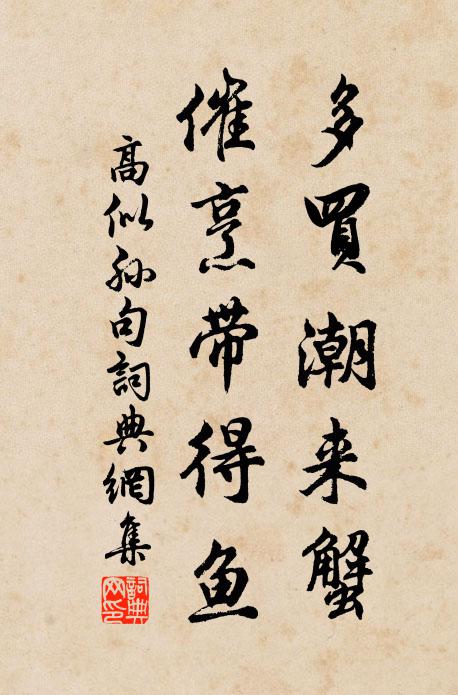 多買潮来蟹
催烹带得鱼
高似孙句詞典網集
詞典网印